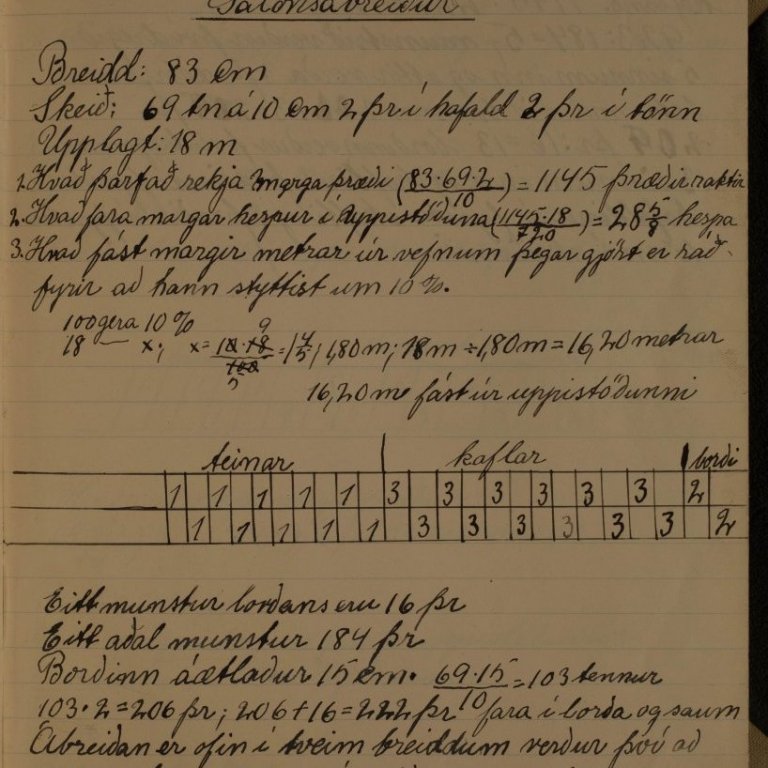 Salonsábreiður
Breidd: 83 cm
Skeið: 69 tn á 10 cm 2 þr í hafald 2 þr í tönn
Upplagt: 18 m
1. Hvað þarf að rekja marga þræði (83·69·2/10) = 1145 þræðir raktir
2. Hvað fara margar hespur í uppistöðuna (1145·18/720) = 28 5/8 hespa
3. Hvað fást margir metrar úr vefnum þegar gjört er ráð
fyrir að hann styttist um 10%.
100 gera 10%
18 — x; x = 10·18/100 = 1 4/5; 1,80 m; 18 m ÷ 1,80 m = 16,20 metrar
16,20 m fást úr uppistöðunni
teinar kaflar borði
1 1 1 1 1 3 3 3 3 3 3 2
1 1 1 1 1 3 3 3 3 3 3 2
Eitt munstur borðans eru 16 þr
Eitt aðal munstur 184 þr
Borðinn áætlaður 15 cm. 69·15/10 = 103 tennur
103·2=206 þr; 206+16=222 þr fara í borða og saum
Ábreiðan er ofin í tveim breiddum verður því að